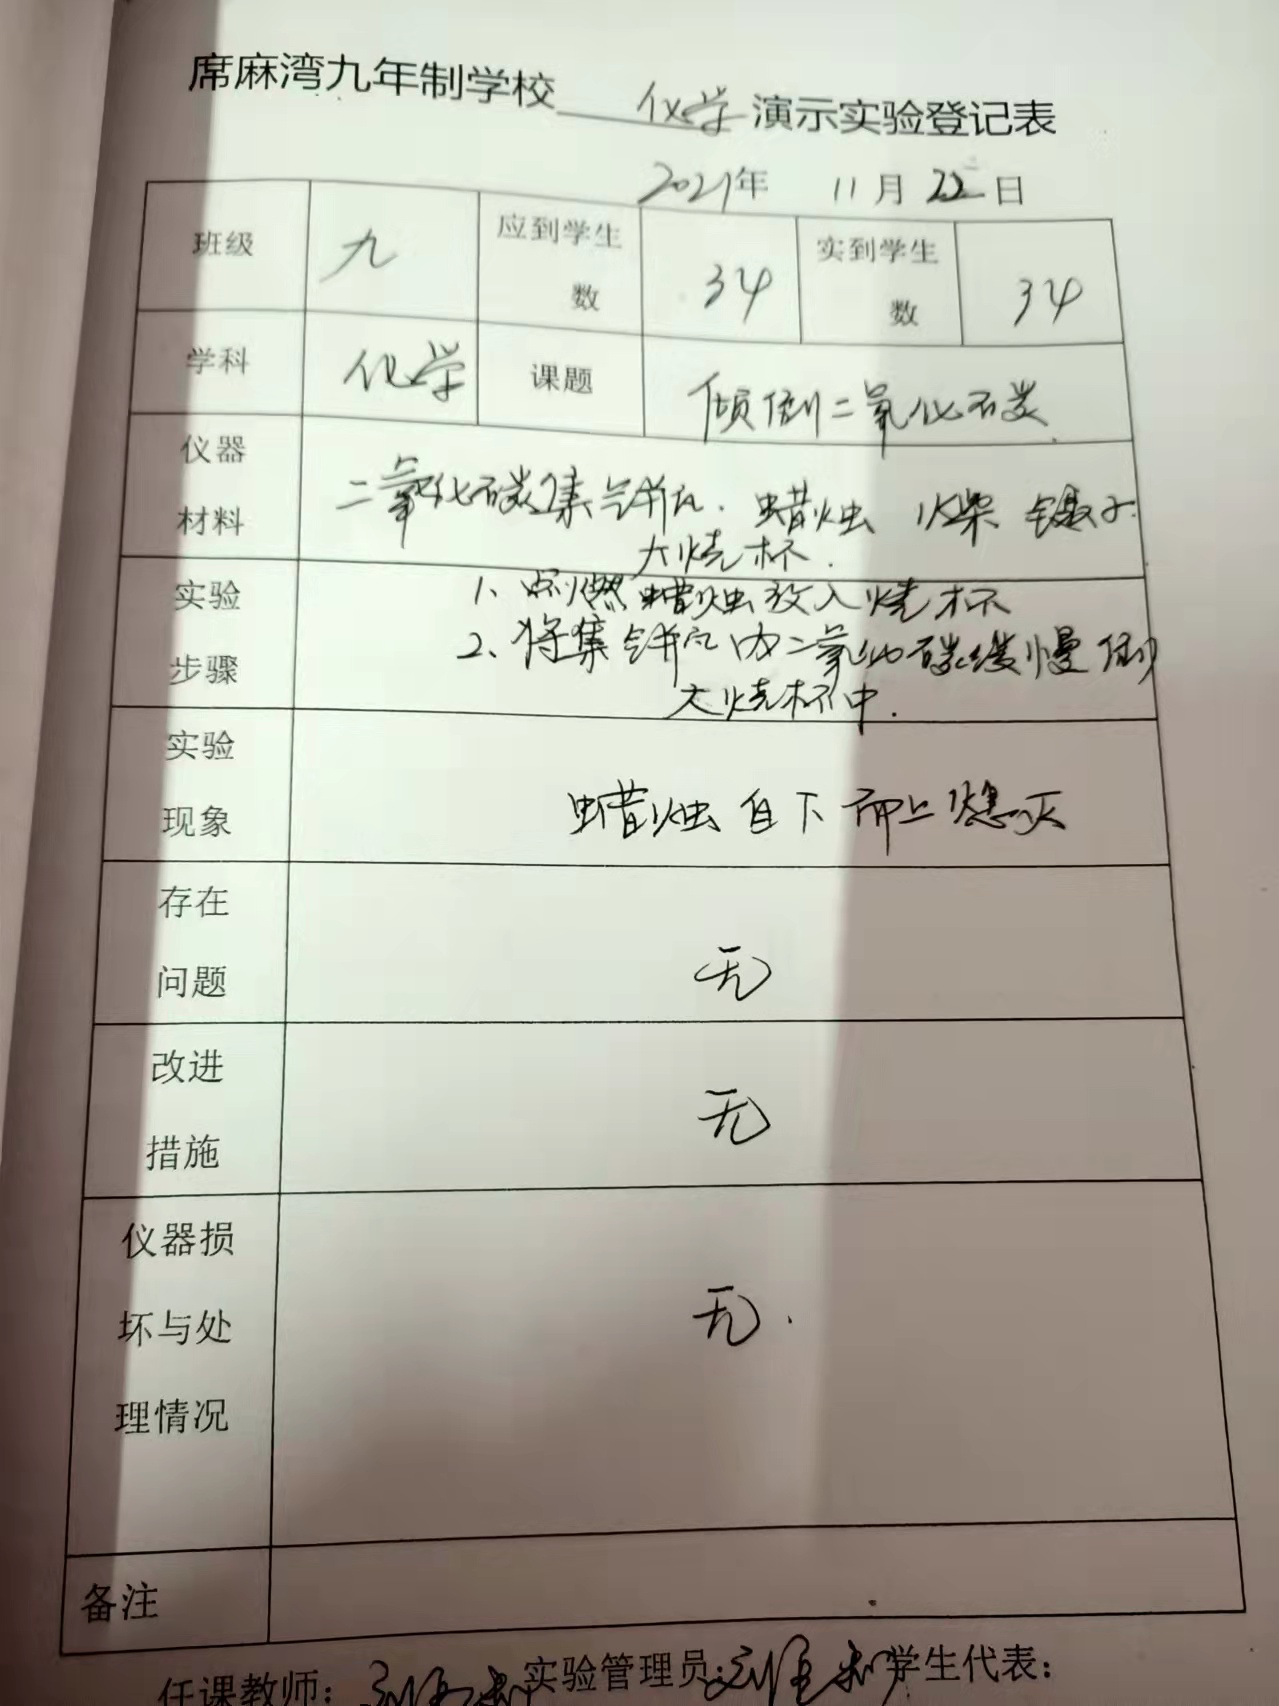 席麻湾九年制学校 化学 演示实验登记表
2021年 11月22日
班级 九 应到学生数 34 实到学生数 34
学科 化学 课题 倾倒二氧化碳
仪器材料 二氧化碳集气瓶. 蜡烛 火柴 镊子.
大烧杯.
实验步骤 1、点燃蜡烛放入烧杯
2、将集气瓶内二氧化碳缓慢倒
大烧杯中.
实验现象 蜡烛自下而上熄灭
存在问题 无
改进措施 无
仪器损坏与处理情况 无.
备注
任课教师: 实验管理员: 学生代表: